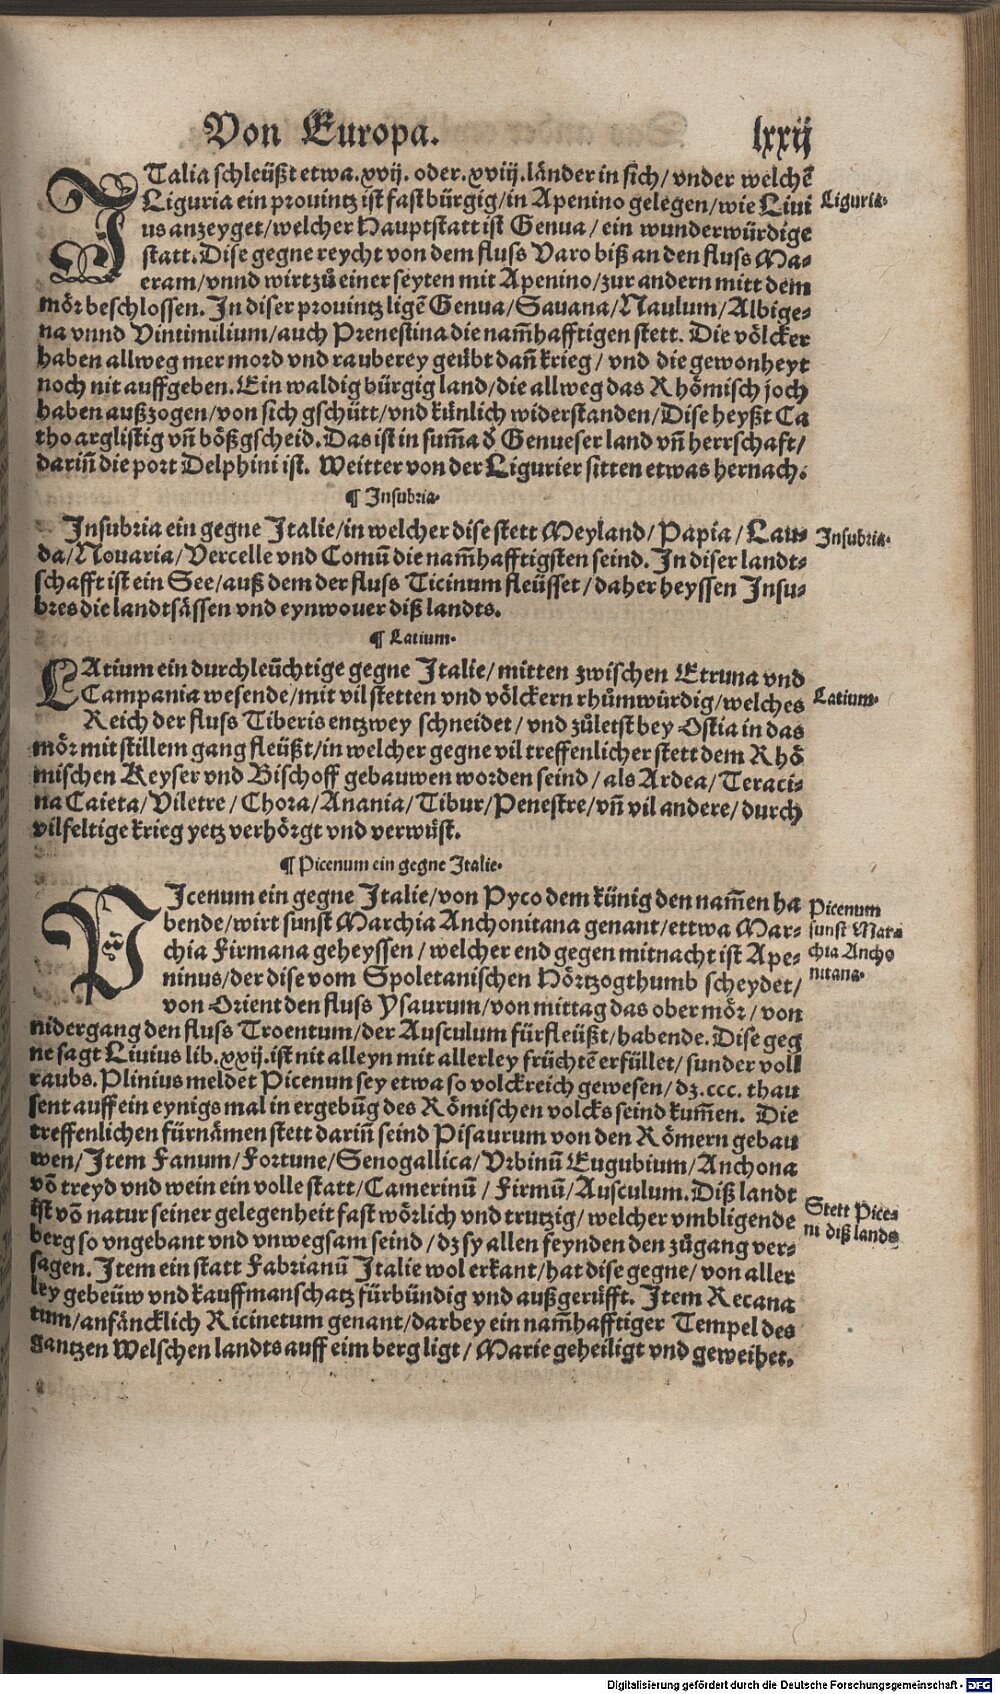 Von Europa.
lxxij
ITalia schleüßt etwa.xvij. oder.xviij.länder in sich/ vnder welchē
Liguria ein prouintz ist fast bürgig/in Apenino gelegen/wie Liui
us anzeyget/welcher Hauptstatt ist Genua/ ein wunderwürdige
statt. Dise gegne reycht von dem fluss Varo biß an den fluss Ma-
eram/vnnd wirt zů einer seyten mit Apenino/zur andern mitt dem
mör beschlossen. In diser prouintz ligē Genua/Sauana/Naulum/Albige-
na vnnd Vintimilium/auch Prenestina die nam̄hafftigen stett. Die völcker
haben allweg mer mord vnd rauberey geübt dañ krieg/ vnd die gewonheyt
noch nit auffgeben. Ein waldig bürgig land/die allweg das Rhömisch joch
haben außzogen/von sich gschütt/vnd künlich widerstanden/Dise heyßt Ca
tho arglistig vñ bößgscheid. Das ist in sum̄a d' Genueser land vñ herrschaft/
dariñ die port Delphini ist. Weitter von der Ligurier sitten etwas hernach.
Liguria.
¶ Insubria.
Insubria ein gegne Italie/in welcher dise stett Meyland/Papia/Lau-
da/Nouaria/Vercelle vnd Comū die nam̄hafftigsten seind. In diser landt-
schafft ist ein See/auß dem der fluss Ticinum fleüsset/daher heyssen Insu-
bres die landtsässen vnd eynwoner diß landts.
Insubria.
¶ Latium.
LAtium ein durchleüchtige gegne Italie/mitten zwischen Etruna vnd
Campania wesende/mit vil stetten vnd völckern rhůmwürdig/welches
Reich der fluss Tiberis entzwey schneidet/vnd zůletst bey Ostia in das
mör mit stillem gang fleüßt/in welcher gegne vil treffenlicher stett dem Rhö
mischen Keyser vnd Bischoff gebauwen worden seind/als Ardea/Teraci-
na Caieta/Viletre/Chora/Anania/Tibur/Penestre/vñ vil andere/durch
vilfeltige krieg yetz verhörgt vnd verwüst.
Latium.
¶ Picenum ein gegne Italie.
PIcenum ein gegne Italie/von Pyco dem künig den nam̄en ha
bende/wirt sunst Marchia Anchonitana genant/ettwa Mar-
chia Firmana geheyssen/welcher end gegen mitnacht ist Ape-
ninus/der dise vom Spoletanischen Hörtzogthumb scheydet/
von Orient den fluss Ysaurum/von mittag das ober mör/von
nidergang den fluss Troentum/der Ausculum fürfleüßt/habende. Dise geg
ne sagt Liuius lib.xxij.ist nit alleyn mit allerley früchtē erfüllet/sunder voll
raubs. Plinius meldet Picenun sey etwa so volckreich gewesen/dz.ccc. thau
sent auff ein eynigs mal in ergebūg des Römischen volcks seind kum̄en. Die
treffenlichen fürnämen stett dariñ seind Pisaurum von den Römern gebau
wen/Item Fanum/Fortune/Senogallica/Vrbinū Eugubium/Anchona
vō treyd vnd wein ein volle statt/Camerinū/Firmū/Ausculum. Diß landt
ist vō natur seiner gelegenheit fast wörlich vnd trutzig/welcher vmbligende
berg so vngebant vnd vnwegsam seind/dz sy allen feynden den zůgang ver-
sagen. Item ein statt Fabrianū Italie wol erkant/hat dise gegne/von aller
ley gebeüw vnd kauffmanschatz fürbündig vnd außgerüfft. Item Recana
tum/anfäncklich Ricinetum genant/darbey ein nam̄hafftiger Tempel des
gantzen Welschen landts auff eim berg ligt/Marie geheiligt vnd geweihet.
Picenum
sunst Mar-
chia Ancho
nitana.
Stett Pice-
ni diß lands
Digitalisierung gefördert durch die Deutsche Forschungsgemeinschaft - DFG